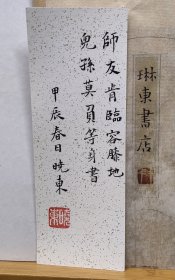 師友肯臨容膝地
兒孫莫負等身書
甲辰春日曉東
琳東書店